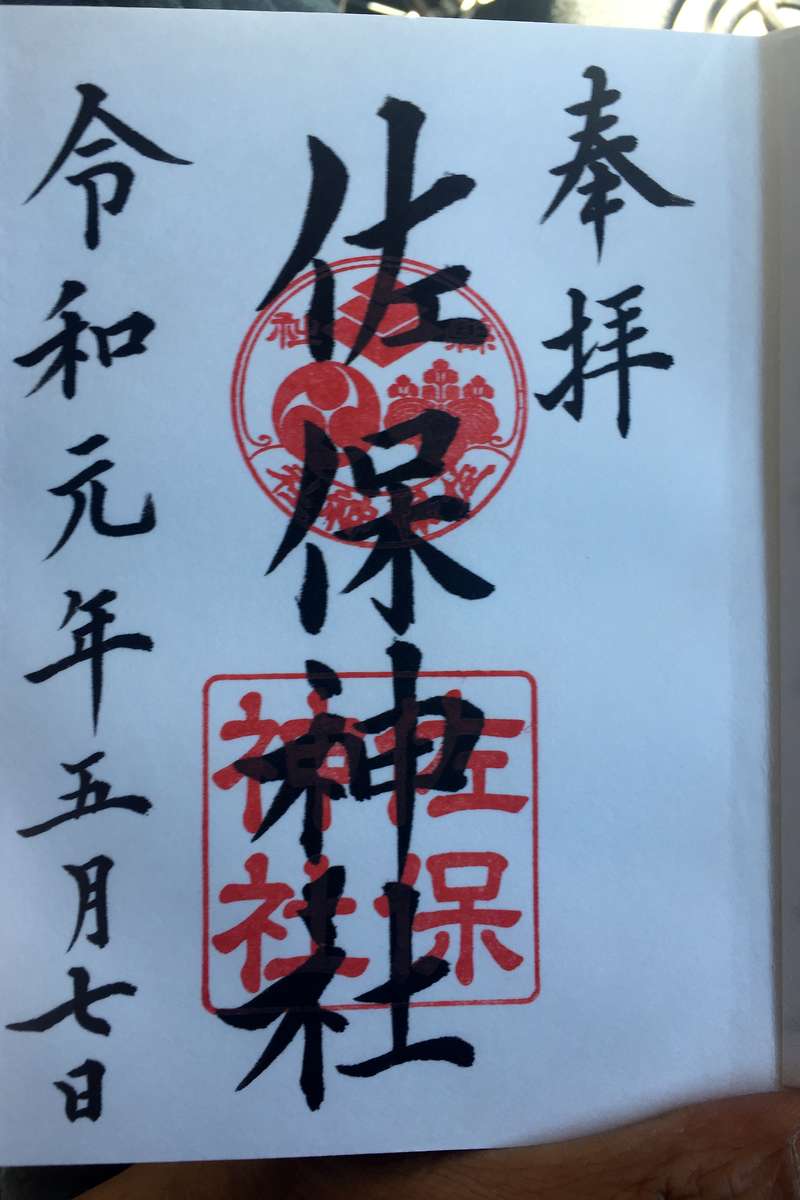 奉拝
佐保神社
佐保
神社
令和元年五月七日